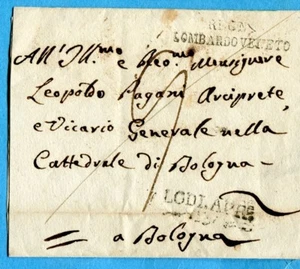 REGNO
LOMBARDO VENETO
All' Ill.mo e Rev.mo Monsignore
Leopoldo Pagani Arciprete,
e Vicario Generale nella
Cattedrale di Bologna
LODI APR
a Bologna